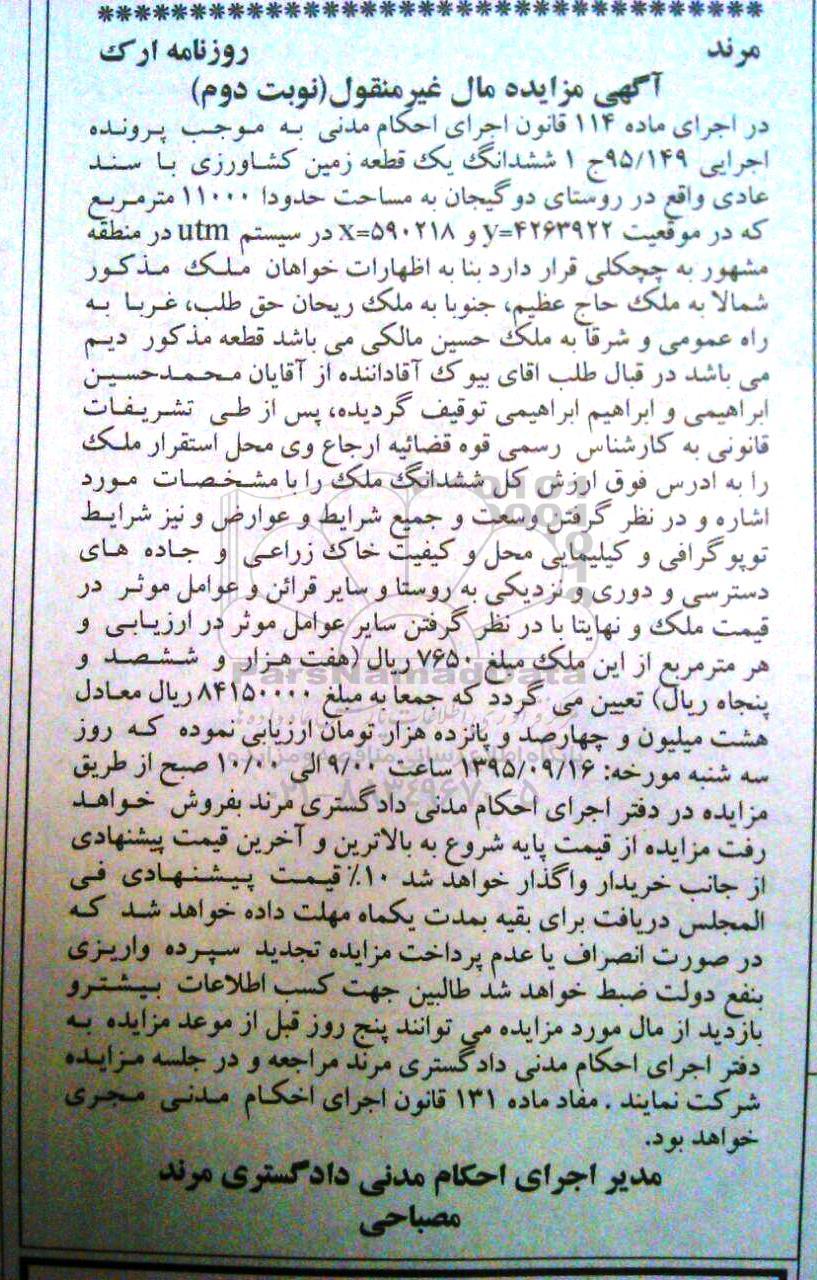 ************************************
مرند روزنامه ارک
آگهی مزایده مال غیرمنقول(نوبت دوم)
در اجرای ماده ۱۱۴ قانون اجرای احکام مدنی به موجب پرونده
اجرایی ۹۵/۱۴۹ج ۱ ششدانگ یک قطعه زمین کشاورزی با سند
عادی واقع در روستای دوگیجان به مساحت حدودا ۱۱۰۰۰ مترمربع
که در موقعیت y=۴۲۶۳۹۲۲ و x=۵۹۰۲۱۸ در سیستم utm در منطقه
مشهور به چچکلی قرار دارد بنا به اظهارات خواهان ملک مذکور
شمالا به ملک حاج عظیم، جنوبا به ملک ریحان حق طلب، غربا به
راه عمومی و شرقا به ملک حسین مالکی می باشد قطعه مذکور دیم
می باشد در قبال طلب اقای بیوک آقاداننده از آقایان محمدحسین
ابراهیمی و ابراهیم ابراهیمی توقیف گردیده، پس از طی تشریفات
قانونی به کارشناس رسمی قوه قضائیه ارجاع وی محل استقرار ملک
را به ادرس فوق ارزش کل ششدانگ ملک را با مشخصات مورد
اشاره و در نظر گرفتن وسعت و جمیع شرایط و عوارض و نیز شرایط
توپوگرافی و کیلیمایی محل و کیفیت خاک زراعی و جاده های
دسترسی و دوری و نزدیکی به روستا و سایر قرائن و عوامل موثر در
قیمت ملک و نهایتا با در نظر گرفتن سایر عوامل موثر در ارزیابی و
هر مترمربع از این ملک مبلغ ۷۶۵۰ ریال (هفت هزار و ششصد و
ParsNamadData
پنجاه ریال) تعیین می گردد که جمعا به مبلغ ۸۴۱۵۰۰۰۰ ریال معادل
هشت میلیون و چهارصد و پانزده هزار تومان ارزیابی نموده که روز
پایگاه اطلاع رسانی مناقصه و مزایده
سه شنبه مورخه: ۱۳۹۵/۰۹/۱۶ ساعت ۹/۰۰ الی ۱۰/۰۰ صبح از طریق
۰۲۱-۸۸۳۴۹۶۷۰-۵
مزایده در دفتر اجرای احکام مدنی دادگستری مرند بفروش خواهد
رفت مزایده از قیمت پایه شروع به بالاترین و آخرین قیمت پیشنهادی
از جانب خریدار واگذار خواهد شد ۱۰٪ قیمت پیشنهادی فی
المجلس دریافت برای بقیه بمدت یکماه مهلت داده خواهد شد که
در صورت انصراف یا عدم پرداخت مزایده تجدید سپرده واریزی
بنفع دولت ضبط خواهد شد طالبین جهت کسب اطلاعات بیشترو
بازدید از مال مورد مزایده می توانند پنج روز قبل از موعد مزایده به
دفتر اجرای احکام مدنی دادگستری مرند مراجعه و در جلسه مزایده
شرکت نمایند . مفاد ماده ۱۳۱ قانون اجرای اخکام مدنی مجری
خواهد بود.
مدیر اجرای احکام مدنی دادگستری مرند
مصباحی